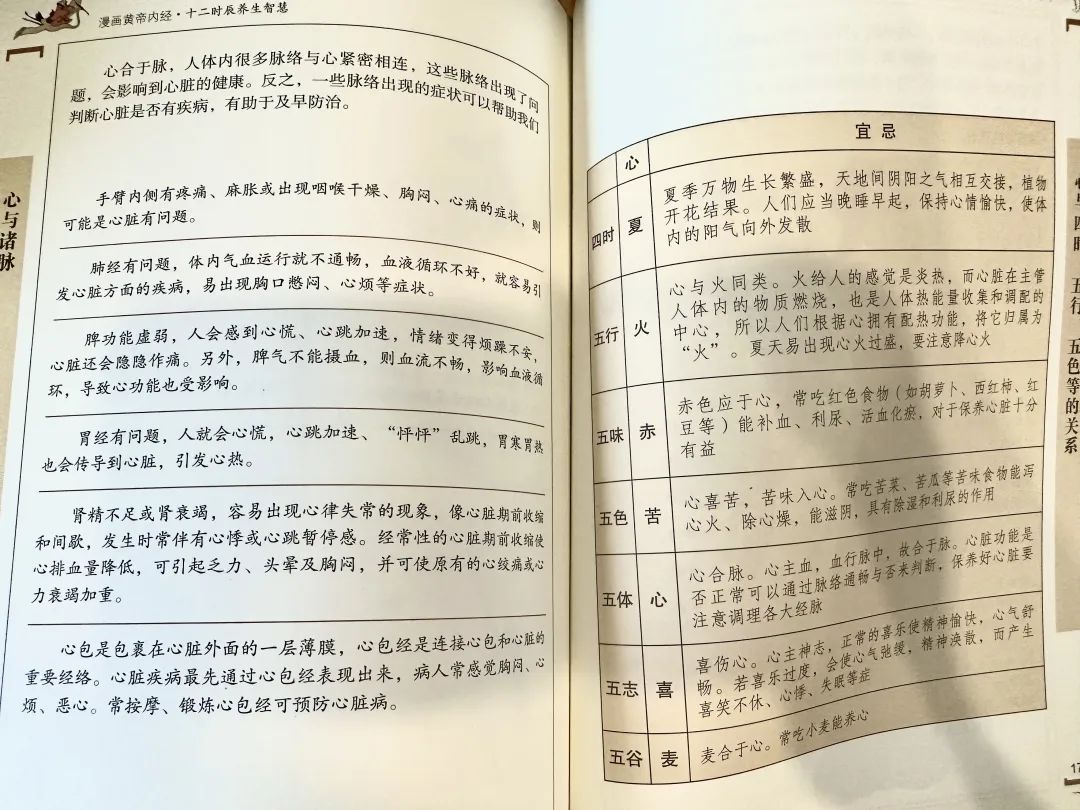 漫画黄帝内经·十二时辰养生智慧
心合于脉，人体内很多脉络与心紧密相连，这些脉络出现了问
题，会影响到心脏的健康。反之，一些脉络出现的症状可以帮助我们
判断心脏是否有疾病，有助于及早防治。
心与诸脉
手臂内侧有疼痛、麻胀或出现咽喉干燥、胸闷、心痛的症状，则
可能是心脏有问题。
肺经有问题，体内气血运行就不通畅，血液循环不好，就容易引
发心脏方面的疾病，易出现胸口憋闷、心烦等症状。
脾功能虚弱，人会感到心慌、心跳加速，情绪变得烦躁不安，
心脏还会隐隐作痛。另外，脾气不能摄血，则血流不畅，影响血液循
环，导致心功能也受影响。
胃经有问题，人就会心慌，心跳加速、“怦怦”乱跳，胃寒胃热
也会传导到心脏，引发心热。
肾精不足或肾衰竭，容易出现心律失常的现象，像心脏期前收缩
和间歇，发生时常伴有心悸或心跳暂停感。经常性的心脏期前收缩使
心排血量降低，可引起乏力、头晕及胸闷，并可使原有的心绞痛或心
力衰竭加重。
心包是包裹在心脏外面的一层薄膜，心包经是连接心包和心脏的
重要经络。心脏疾病最先通过心包经表现出来，病人常感觉胸闷、心
烦、恶心。常按摩、锻炼心包经可预防心脏病。
心
宜忌
四时
夏
夏季万物生长繁盛，天地间阴阳之气相互交接，植物
开花结果。人们应当晚睡早起，保持心情愉快，使体
内的阳气向外发散
五行
火
心与火同类。火给人的感觉是炎热，而心脏在主管
人体内的物质燃烧，也是人体热能量收集和调配的
中心，所以人们根据心拥有配热功能，将它归属为
“火”。夏天易出现心火过盛，要注意降心火
五味
赤
赤色应于心，常吃红色食物（如胡萝卜、西红柿、红
豆等）能补血、利尿、活血化瘀，对于保养心脏十分
有益
五色
苦
心喜苦，苦味入心。常吃苦菜、苦瓜等苦味食物能泻
心火、除心燥，能滋阴，具有除湿和利尿的作用
五体
心
心合脉。心主血，血行脉中，故合于脉。心脏功能是
否正常可以通过脉络通畅与否来判断，保养好心脏要
注意调理各大经脉
五志
喜
喜伤心。心主神志，正常的喜乐使精神愉快，心气舒
畅。若喜乐过度，会使心气弛缓，精神涣散，而产生
喜笑不休、心悸、失眠等症
五谷
麦
麦合于心。常吃小麦能养心
四时 五行 五色等的关系
17